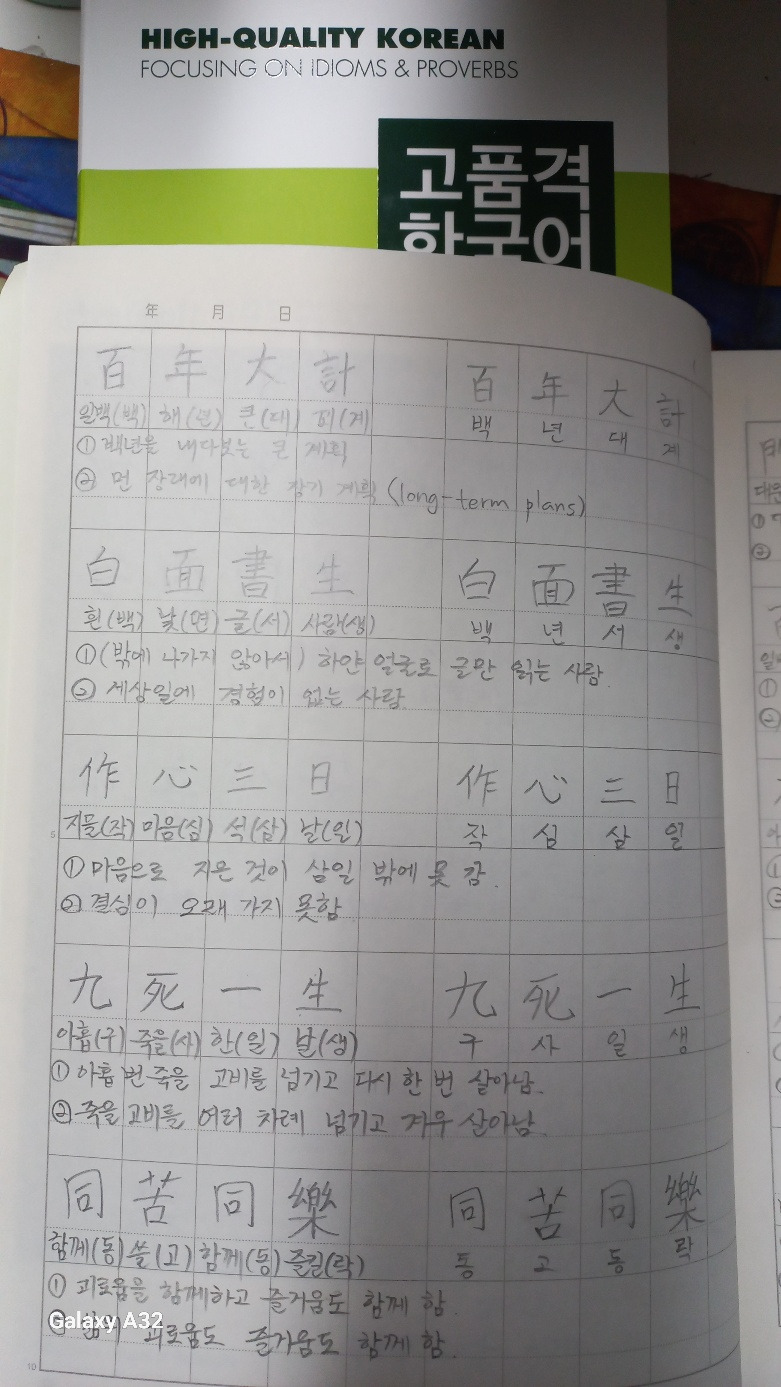 HIGH-QUALITY KOREAN
FOCUSING ON IDIOMS & PROVERBS
고품격
한국어
年 月 日
百 年 大 計 百 年 大 計
일백(백) 해(년) 큰(대) 꾀(계) 백 년 대 계
① 백년을 내다보는 큰 계획
② 먼 장래에 대한 장기 계획 (long-term plans)
白 面 書 生 白 面 書 生
흰(백) 낯(면) 글(서) 사람(생) 백 년 서 생
① (밖에 나가지 않아서) 하얀 얼굴로 글만 읽는 사람.
② 세상일에 경험이 없는 사람.
作 心 三 日 作 心 三 日
5
지을(작) 마음(심) 석(삼) 날(일) 작 심 삼 일
① 마음으로 지은 것이 삼일 밖에 못 감.
② 결심이 오래 가지 못함
九 死 一 生 九 死 一 生
아홉(구) 죽을(사) 한(일) 날(생) 구 사 일 생
① 아홉 번 죽을 고비를 넘기고 다시 한 번 살아남.
② 죽을 고비를 여러 차례 넘기고 겨우 살아남.
同 苦 同 樂 同 苦 同 樂
함께(동) 쓸(고) 함께(동) 즐길(락) 동 고 동 락
① 괴로움을 함께하고 즐거움도 함께 함.
괴로움도 즐거움도 함께 함.
Galaxy A32
10